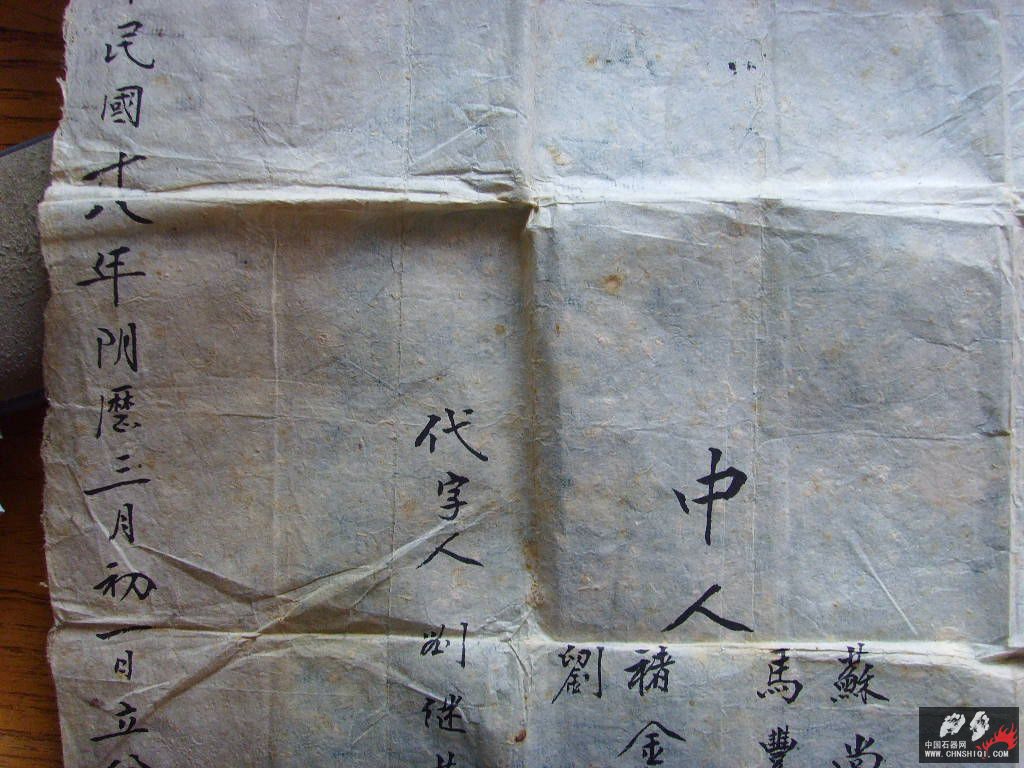 蘇尚
馬豐
中人
褚金
劉
代字人 劉继
民國十八年阴歷三月初一日立
中国石器网
WWW.CHNSHIQI.COM